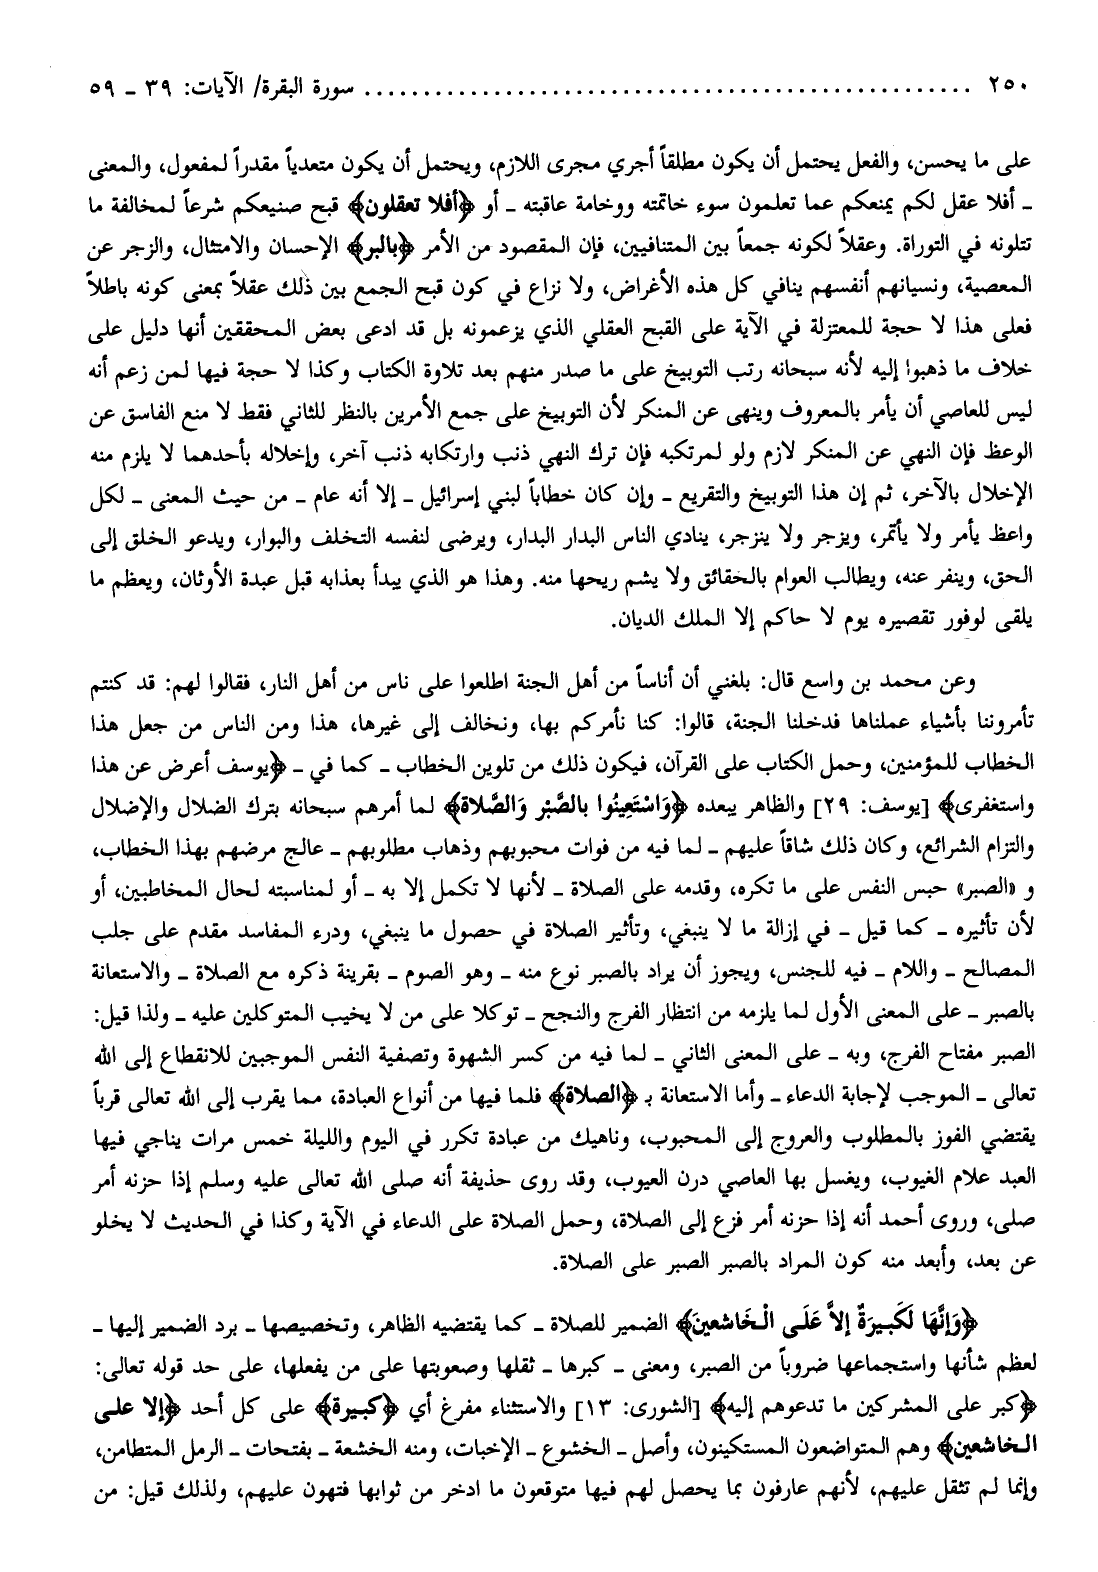 ٢٥٠ .................................................. سورة البقرة/ الآيات: ٣٩ ـ ٥٩
على ما يحسن، والفعل يحتمل أن يكون مطلقاً أجري مجرى اللازم، ويحتمل أن يكون متعدياً مقدراً لمفعول، والمعنى
ـ أفلا عقل لكم يمنعكم عما تعلمون سوء خاتمته ووخامة عاقبته ـ أو ﴿أفلا تعقلون﴾ قبح صنيعكم شرعاً لمخالفة ما
تتلونه في التوراة. وعقلاً لكونه جمعاً بين المتنافيين، فإن المقصود من الأمر ﴿بالبر﴾ الإحسان والامتثال، والزجر عن
المعصية، ونسيانهم أنفسهم ينافي كل هذه الأغراض، ولا نزاع في كون قبح الجمع بين ذلك عقلاً بمعنى كونه باطلاً
فعلى هذا لا حجة للمعتزلة في الآية على القبح العقلي الذي يزعمونه بل قد ادعى بعض المحققين أنها دليل على
خلاف ما ذهبوا إليه لأنه سبحانه رتب التوبيخ على ما صدر منهم بعد تلاوة الكتاب وكذا لا حجة فيها لمن زعم أنه
ليس للعاصي أن يأمر بالمعروف وينهى عن المنكر لأن التوبيخ على جمع الأمرين بالنظر للثاني فقط لا منع الفاسق عن
الوعظ فإن النهي عن المنكر لازم ولو لمرتكبه فإن ترك النهي ذنب وارتكابه ذنب آخر، وإخلاله بأحدهما لا يلزم منه
الإخلال بالآخر، ثم إن هذا التوبيخ والتقريع ـ وإن كان خطاباً لبني إسرائيل ـ إلا أنه عام ـ من حيث المعنى ـ لكل
واعظ يأمر ولا يأتمر، ويزجر ولا ينزجر، ينادي الناس البدار البدار، ويرضى لنفسه التخلف والبوار، ويدعو الخلق إلى
الحق، وينفر عنه، ويطالب العوام بالحقائق ولا يشم ريحها منه. وهذا هو الذي يبدأ بعذابه قبل عبدة الأوثان، ويعظم ما
يلقى لوفور تقصيره يوم لا حاكم إلا الملك الديان.
وعن محمد بن واسع قال: بلغني أن أناساً من أهل الجنة اطلعوا على ناس من أهل النار، فقالوا لهم: قد كنتم
تأمروننا بأشياء عملناها فدخلنا الجنة، قالوا: كنا نأمركم بها، ونخالف إلى غيرها، هذا ومن الناس من جعل هذا
الخطاب للمؤمنين، وحمل الكتاب على القرآن، فيكون ذلك من تلوين الخطاب ـ كما في ـ ﴿يوسف أعرض عن هذا
واستغفرى﴾ [يوسف: ٢٩] والظاهر يبعده ﴿وَاسْتَعِينُوا بالصَّبْرِ وَالصَّلاة﴾ لما أمرهم سبحانه بترك الضلال والإضلال
والتزام الشرائع، وكان ذلك شاقاً عليهم ـ لما فيه من فوات محبوبهم وذهاب مطلوبهم ـ عالج مرضهم بهذا الخطاب،
و «الصبر» حبس النفس على ما تكره، وقدمه على الصلاة ـ لأنها لا تكمل إلا به ـ أو لمناسبته لحال المخاطبين، أو
لأن تأثيره ـ كما قيل ـ في إزالة ما لا ينبغي، وتأثير الصلاة في حصول ما ينبغي، ودرء المفاسد مقدم على جلب
المصالح ـ واللام ـ فيه للجنس، ويجوز أن يراد بالصبر نوع منه ـ وهو الصوم ـ بقرينة ذكره مع الصلاة ـ والاستعانة
بالصبر ـ على المعنى الأول لما يلزمه من انتظار الفرج والنجح ـ توكلا على من لا يخيب المتوكلين عليه ـ ولذا قيل:
الصبر مفتاح الفرج، وبه ـ على المعنى الثاني ـ لما فيه من كسر الشهوة وتصفية النفس الموجبين للانقطاع إلى الله
تعالى ـ الموجب لإجابة الدعاء ـ وأما الاستعانة بـ ﴿الصلاة﴾ فلما فيها من أنواع العبادة، مما يقرب إلى الله تعالى قرباً
يقتضي الفوز بالمطلوب والعروج إلى المحبوب، وناهيك من عبادة تكرر في اليوم والليلة خمس مرات يناجي فيها
العبد علام الغيوب، ويغسل بها العاصي درن العيوب، وقد روى حذيفة أنه صلى الله تعالى عليه وسلم إذا حزنه أمر
صلى، وروى أحمد أنه إذا حزنه أمر فزع إلى الصلاة، وحمل الصلاة على الدعاء في الآية وكذا في الحديث لا يخلو
عن بعد، وأبعد منه كون المراد بالصبر الصبر على الصلاة.
﴿وَإِنَّهَا لَكَبيرَةٌ إلاَّ عَلَى الْخَاشعينَ﴾ الضمير للصلاة ـ كما يقتضيه الظاهر، وتخصيصها ـ برد الضمير إليها ـ
لعظم شأنها واستجماعها ضروباً من الصبر، ومعنى ـ كبرها ـ ثقلها وصعوبتها على من يفعلها، على حد قوله تعالى:
﴿كبر على المشركين ما تدعوهم إليه﴾ [الشورى: ١٣] والاستثناء مفرغ أي ﴿كبيرة﴾ على كل أحد ﴿إلا على
الخاشعين﴾ وهم المتواضعون المستكينون، وأصل ـ الخشوع ـ الإخبات، ومنه الخشعة ـ بفتحات ـ الرمل المتطامن،
وإنما لم تثقل عليهم، لأنهم عارفون بما يحصل لهم فيها متوقعون ما ادخر من ثوابها فتهون عليهم، ولذلك قيل: من